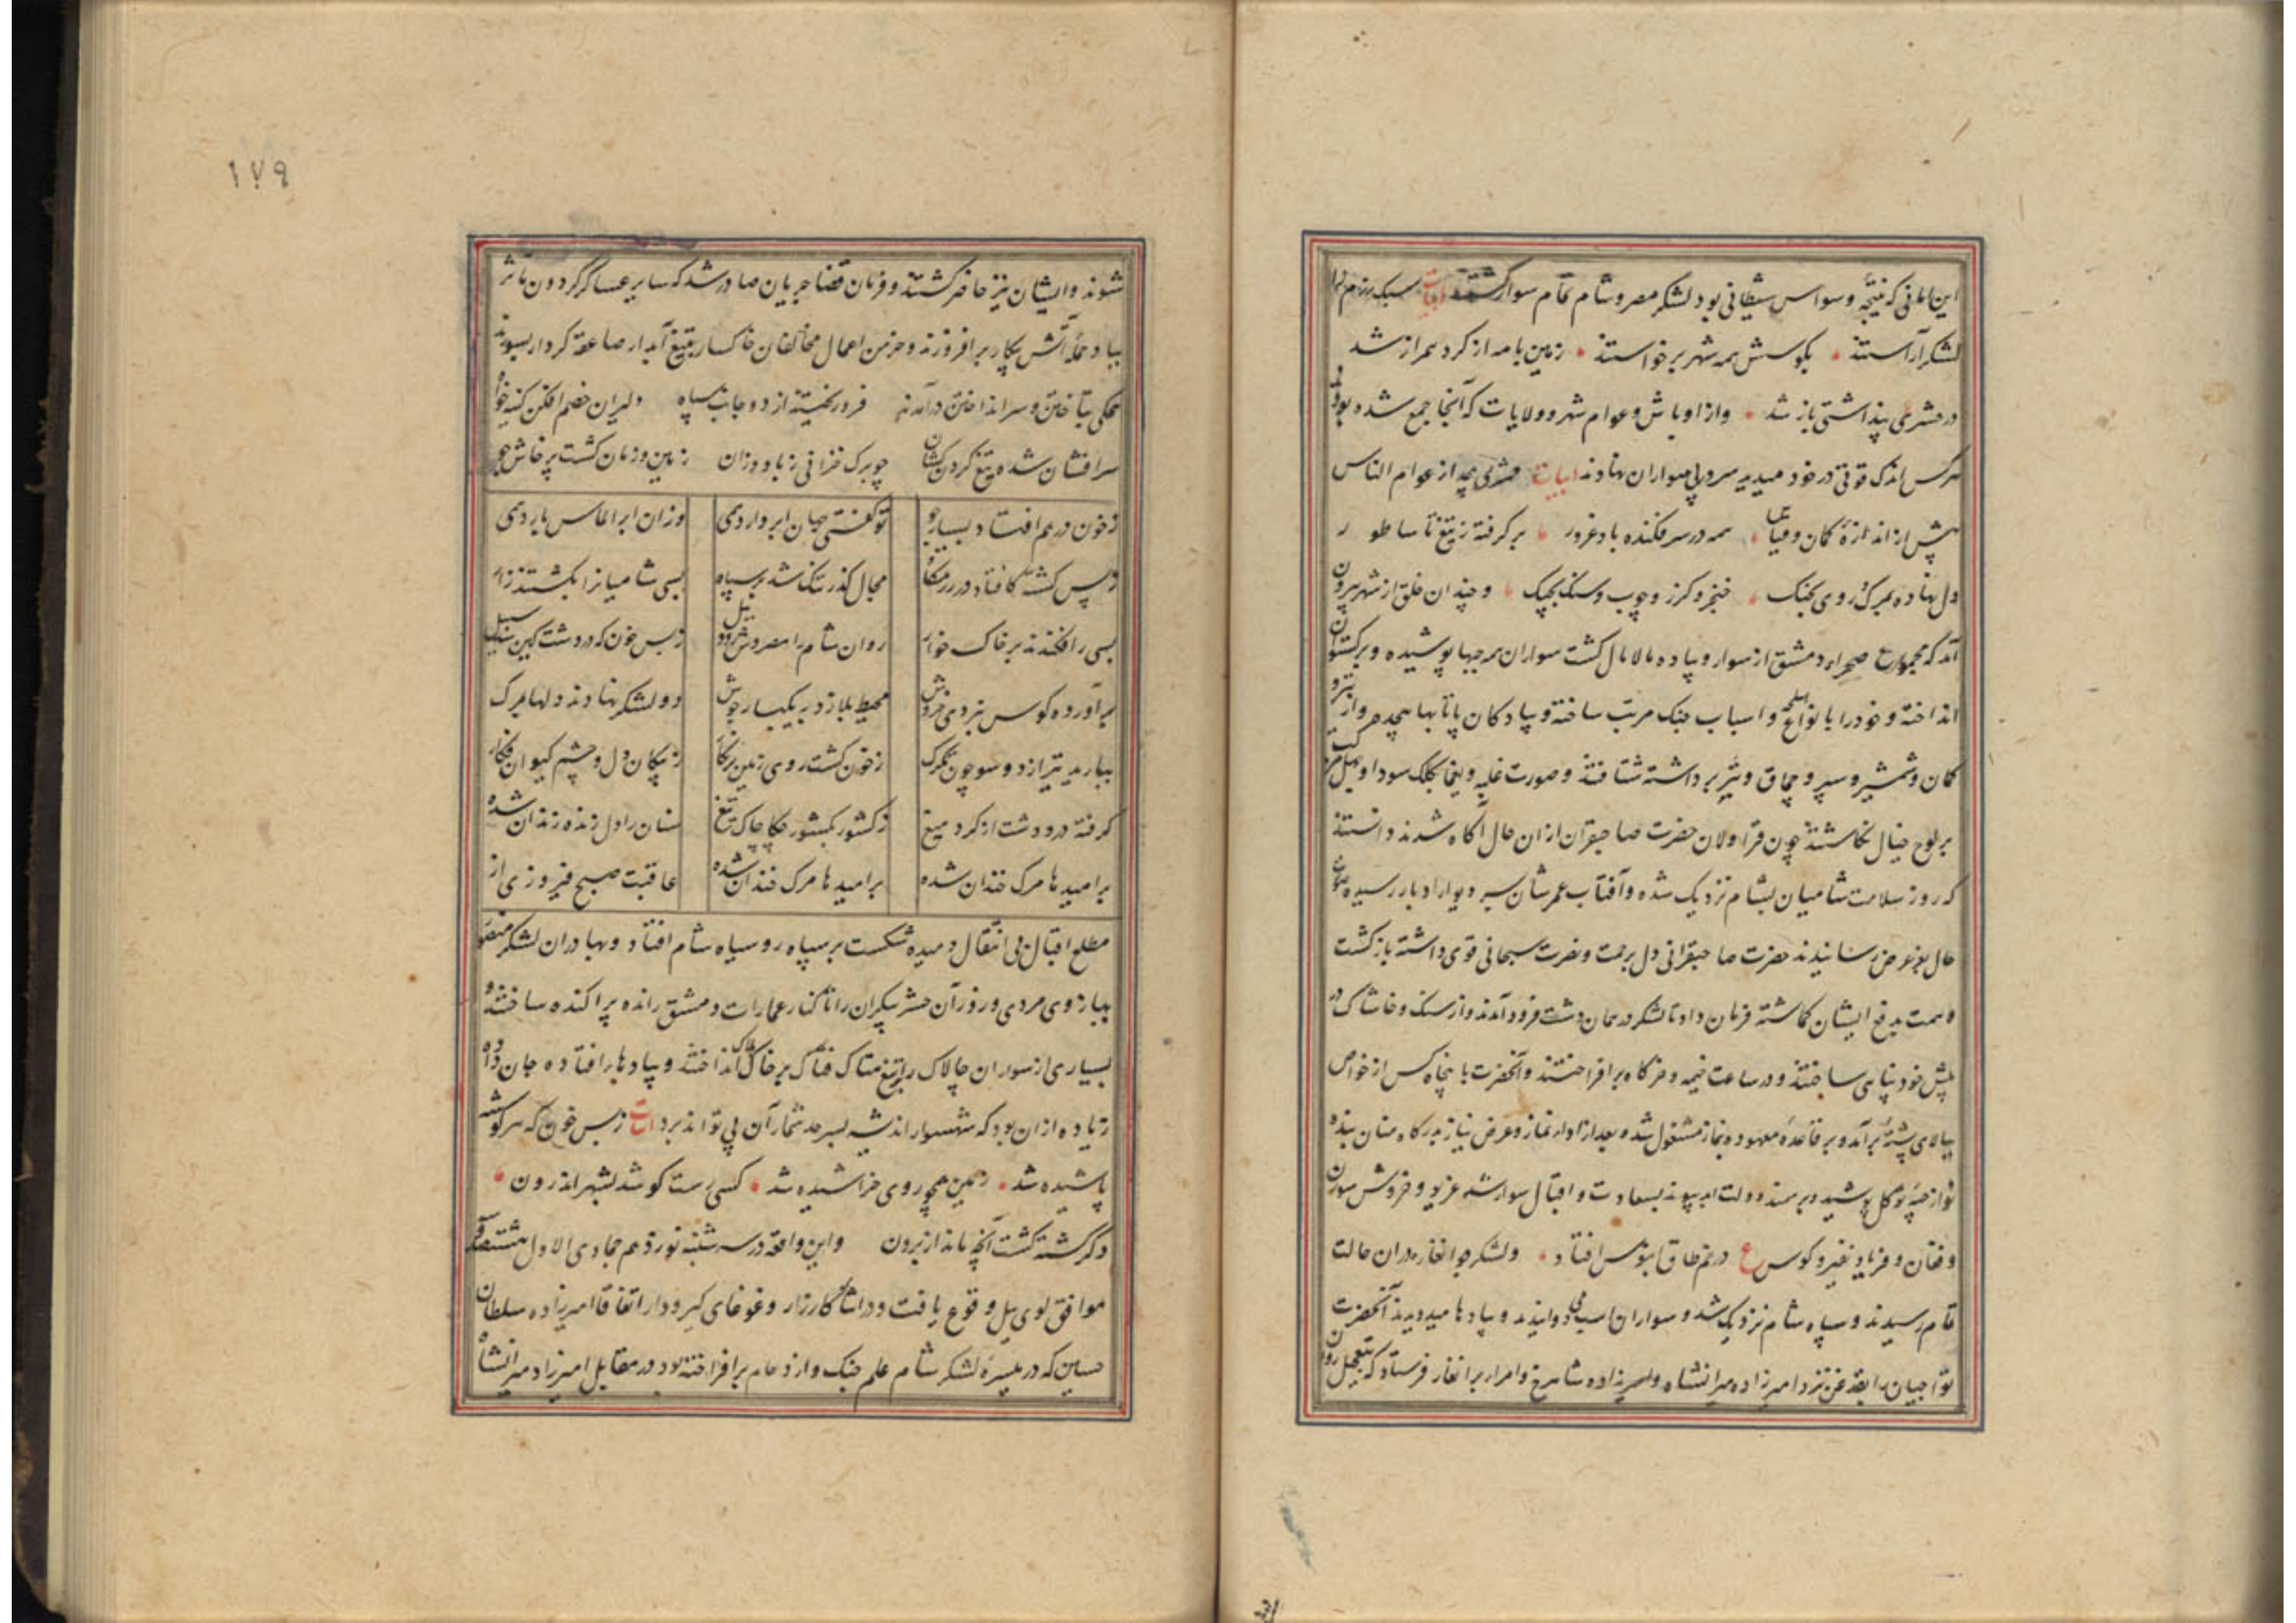 این امانی که نتیجه وسواس شیطانی بود لشکر مصر و شام تمام سوار گشتند ابیات سبک رزم را
لشکر آراستند بکوشش همه شهر برخواستند زمین با مه از کرد همراز شد
در حشر پنداشتی باز شد و از اوباش و عوام شهر و ولایات که آنجا جمع شده بودند
هرکس اندک قوتی در خود میدید سر در پی سواران نهادند ابیات حشری بیحد از عوام الناس
بیش از اندازهٔ کمان و قیاس همه در سر فکنده باد غرور بر گرفته ز تیغ تا ساطور
دل نهاده بمرک و روی بجنک خنجر و کرز و چوب و سنک بچنک و چندان خلق از شهر بیرون
آمد که مجموع صحراء دمشق از سوار و پیاده مالامال کشت سواران همه جبها پوشیده و برکستوان
انداخته و خود را با نواع اسلحه و اسباب جنک مرتب ساخته و پیادکان پاتابها پیچیده و از تیر و
کمان و شمشیر و سپر و چماق و تبر برداشته شتافتند و صورت غلبه و یغما بکلک سودا و
بر لوح خیال نکاشتند چون قراولان حضرت صاحبقران از ان حال آکاه شدند دانستند
که روز سلامت شامیان بشام نزدیک شده و آفتاب عمرشان بسر دیوار ادبار رسیده صورت
حال بعز عرض رسانیدند حضرت صاحبقرانی دل برحمت و نصرت سبحانی قوی داشته بازکشت
و همت بدفع ایشان کماشته فرمان داد تا لشکر در همان دشت فرود آمدند و از سنک و خاشاک در
پیش خود پناهی ساختند و در ساعت خیمه و خرکاه برافراختند و آنحضرت با پنجاه کس از خواص
ببالای پشتهٔ برآمد و بر قاعدهٔ معهوده بنماز مشغول شد و بعد از اداء نماز و عرض نیاز بدرکاه منان بنده
نواز جبهٔ توکل پوشید و بر سمند دولت ابد پیوند بسعادت و اقبال سوار شد غریو و خروش سورن
و فغان و فریاد نفیر و کوس ع در خم طاق آبنوس افتاد و لشکر جوانغار در ان حالت
تمام رسیدند و سپاه شام نزدیک شد و سواران اسب می دوانیدند و پیادها میدویدند آنحضرت
تواجیان بدایقه عزیز نزد امیرزاده میرانشاه و امیرزاده شاهرخ و امراء برانغار فرستاد که بتعجیل روان
۱۷۹
شوند و ایشان نیز حاضر کشتند و فرمان قضا جریان صادر شد که سایر عساکر کردون مآثر
بباد حمله آتش پیکار برافروزند و خرمن اعمال مخالفان خاکسار بتیغ آبدار صاعقه کردار بسوزند
همکی بتاختن و سر انداختن درآمدند فرو ریختند از دو جانب سپاه دلیران خصم افکن کینه خواه
سر افشان شده تیغ کردن کشان چو برک خزانی ز باد وزان زمین و زمان کشت پرخاش جو
ز خون در هم افتاد بسیار جو تو کفتی جهان ابر دارد همی وزان ابر الماس بارد همی
ز بس کشته کافتاد در رزمکاه مجال کذر تنک شد بر سپاه بسی شامیانرا بکشتند زار
بسی را فکندند بر خاک خوار روان شام را مصر وش رود نیل ز بس خون که در دشت کین شد سبیل
برآورده کوس نبردی خروش محیط بلا زد بیکبار جوش دو لشکر نهادند دلها بمرک
ببارید تیر از دو سو چون تکرک ز خون کشت روی زمین پر نکار ز پیکان دل و چشم کیوان فکار
کرفته در و دشت از کرد میغ ز کشور بکشور چکاچاک تیغ سنان را دل زنده زندان شده
بر امیدها مرک خندان شده بر امیدها مرک خندان شده عاقبت صبح فیروزی از
مطلع اقبال بی انتقال دمیده شکست بر سپاه روسیاه شام افتاد و بهادران لشکر منصور
ببازوی مردی و زور آن حشر بیکران را تا کنار عمارات دمشق رانده پراکنده ساختند و
بسیاری از سواران چالاک را بتیغ فتاک بر خاک هلاک انداختند و پیادهاء افتاده جان داده
زیاده از ان بود که شهسوار اندیشه بسرحد شمار آن پی تواند برد ابیات ز بس خون که هر کوشه
پاشیده شد زمین همچو روی خراشیده شد کسی رست کو شد بشهر اندرون
دکر کشته کشت آنچه ماند از برون و این واقعه در سه شنبه نوزدهم جمادی الاول
موافق لوی ییل وقوع یافت و در اثناء کارزار و غوغای کیر و دار اتفاقا امیرزاده سلطان
حسین که در میسرهٔ لشکر شام علم جنک و ازدحام برافراخته بود در مقابل امیرزاده میرانشاه